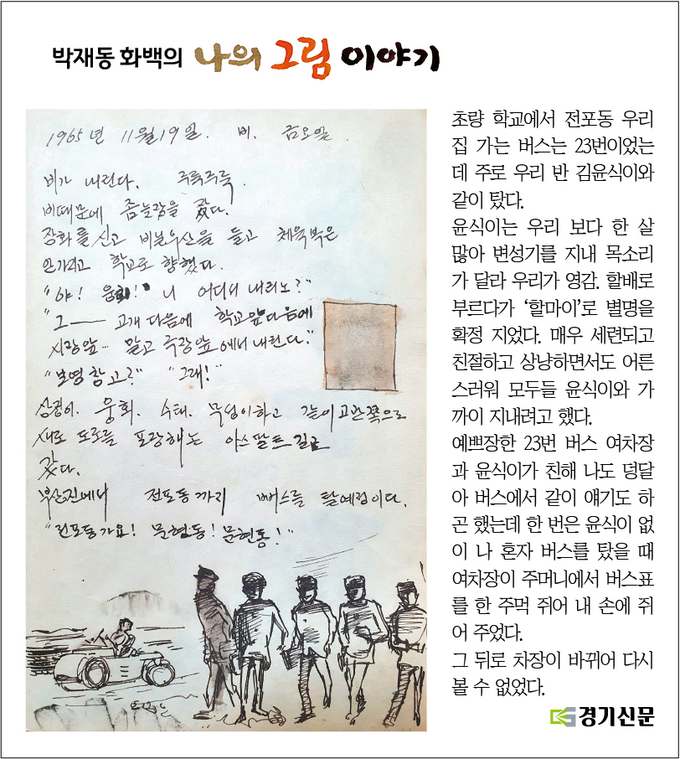 박재동 화백의 나의 그림 이야기
1965년 11월 19일. 비. 금요일.
비가 내린다. 주룩주룩.
비때문에 좀 늦장을 갔다.
장화를 신고 비닐우산을 들고 체육복은
안가지고 학교로 향했다.
"야! 웅희! 니 어디더 내리노?"
"그── 고개 다음에 학교앞 다음에
시장앞… 말고 극장앞에서 내린다."
"보영창고?" "그래!"
웅희. 수태. 같이 고관쪽으로
새로 도로를 포장하는 아스팔트길로
갔다.
부산진에서 전포동까지 뻐스를 탈예정이다.
"전포동가요! 문현동! 문현동!"
초량 학교에서 전포동 우리
집 가는 버스는 23번이었는
데 주로 우리 반 김윤식이와
같이 탔다.
윤식이는 우리 보다 한 살
많아 변성기를 지내 목소리
가 달라 우리가 영감. 할배로
부르다가 '할마이'로 별명을
확정 지었다. 매우 세련되고
친절하고 상냥하면서도 어른
스러워 모두들 윤식이와 가
까이 지내려고 했다.
예쁘장한 23번 버스 여차장
과 윤식이가 친해 나도 덩달
아 버스에서 같이 얘기도 하
곤 했는데 한 번은 윤식이 없
이 나 혼자 버스를 탔을 때
여차장이 주머니에서 버스표
를 한 주먹 쥐어 내 손에 쥐
어 주었다.
그 뒤로 차장이 바뀌어 다시
볼 수 없었다.
경기신문